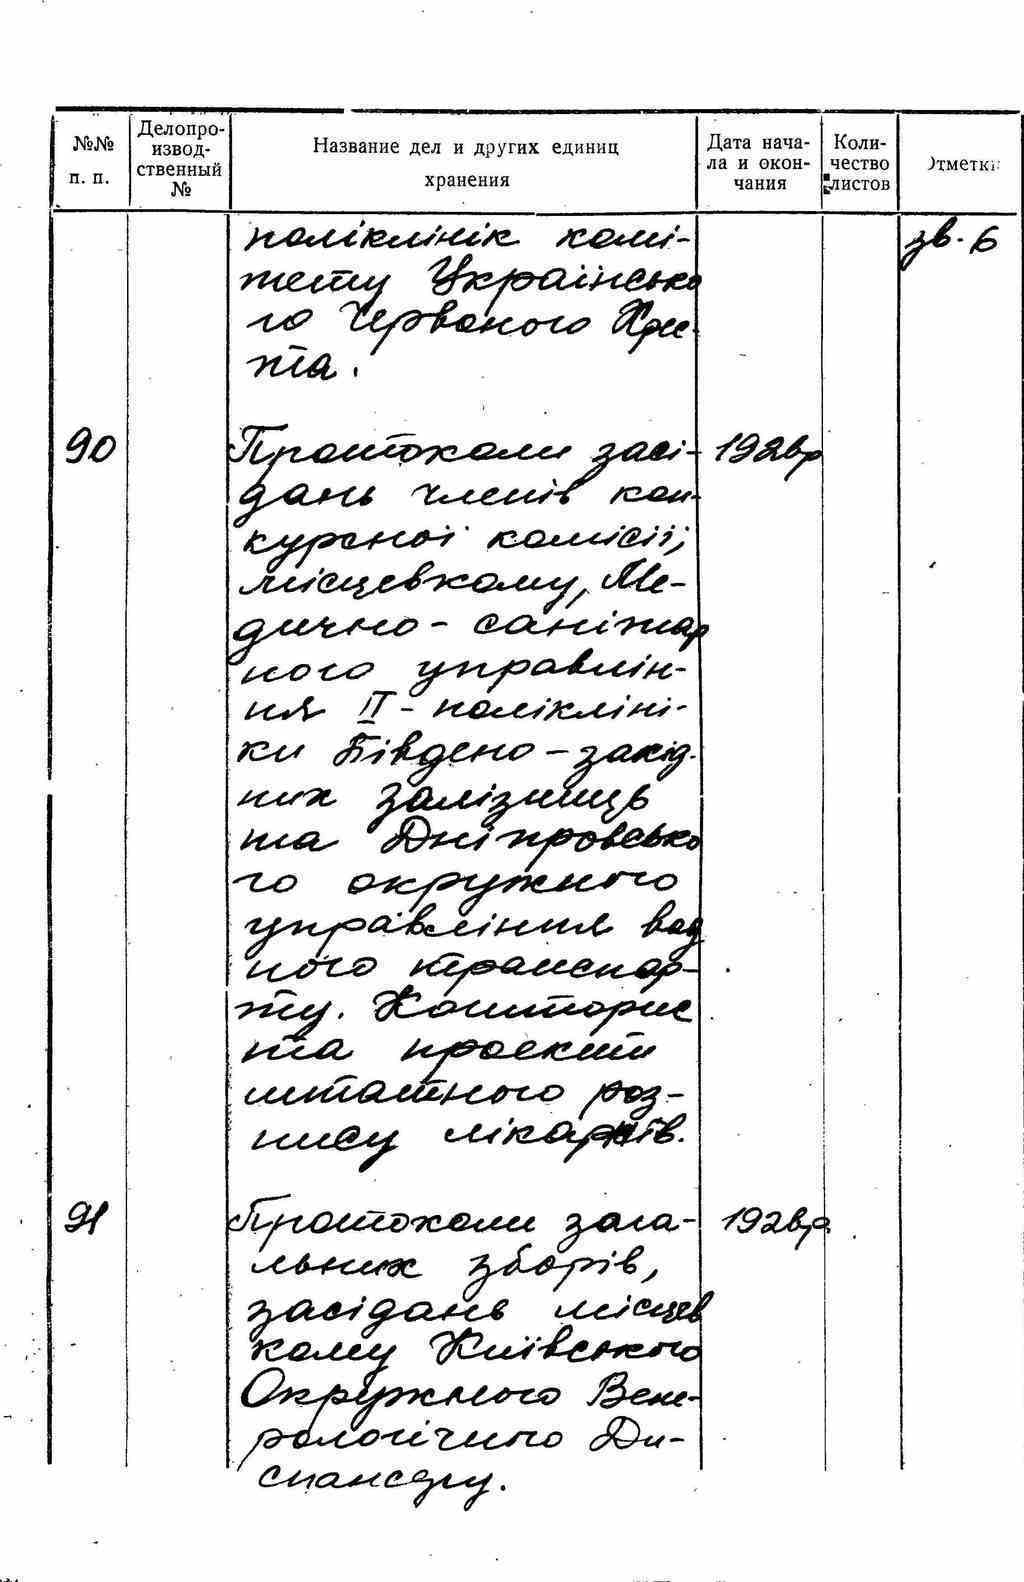 №№ п. п.
Делопро-
извод-
ственный
№
Название дел и других единиц
хранения
Дата нача-
ла и окон-
чания
Коли-
чество
листов
Отметки
поліклінік комі-
тету Українсько
го Червоного Хрес-
та.
зв. 6
90
Протоколи засі-
дань членів кон-
курсної комісії,
місцевкому, Ме-
дично-санітар
ного управлін-
ня II-полікліні-
ки Південо-захід-
них залізниць
та Дніпровсько
го окружного
управління вод
ного транспор-
ту. Кошторис
та проекти
штатного роз-
пису лікарнів.
192вр
91
Протоколи зага-
льних зборів,
засідань місцев
кому Київського
Окружного Вене-
рологічного Ди-
спансеру.
192вр.